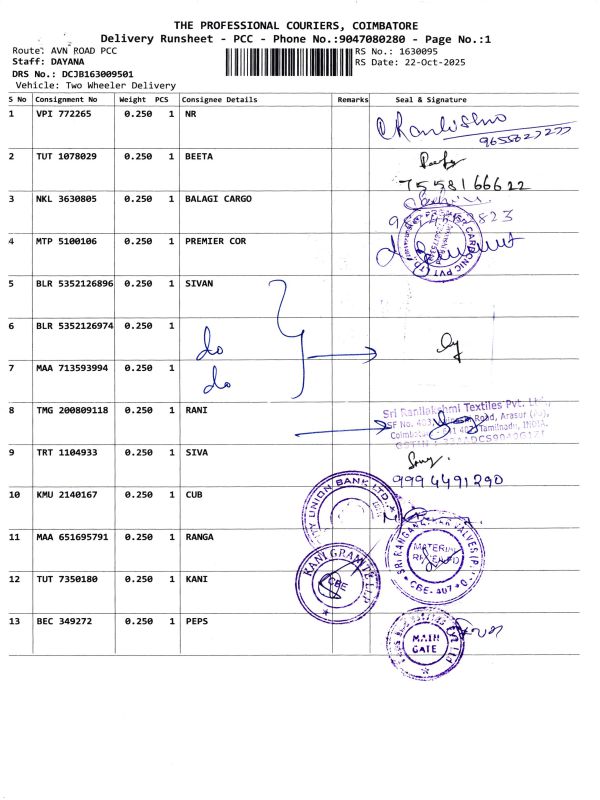 THE PROFESSIONAL COURIERS, COIMBATORE
Delivery Runsheet - PCC - Phone No.:9047080280 - Page No.:1
Route: AVN ROAD PCC
RS No.: 1630095
Staff: DAYANA
RS Date: 22-Oct-2025
DRS No.: DCJB163009501
Vehicle: Two Wheeler Delivery
S No Consignment No Weight PCS Consignee Details Remarks Seal & Signature
1 VPI 772265 0.250 1 NR
2 TUT 1078029 0.250 1 BEETA
7558166622
3 NKL 3630805 0.250 1 BALAGI CARGO
4 MTP 5100106 0.250 1 PREMIER COR
5 BLR 5352126896 0.250 1 SIVAN
6 BLR 5352126974 0.250 1 do
7 MAA 713593994 0.250 1 do
8 TMG 200809118 0.250 1 RANI
Sri Ranilakshmi Textiles Pvt. Ltd.,
SF No. 403, Road, Arasur (Po),
Tamilnadu, INDIA.
9 TRT 1104933 0.250 1 SIVA
9994491290
10 KMU 2140167 0.250 1 CUB
UNION BANK LTD.
11 MAA 651695791 0.250 1 RANGA
MATERIAL
CBE-407
12 TUT 7350180 0.250 1 KANI
CBE
13 BEC 349272 0.250 1 PEPS
MAIN
GATE